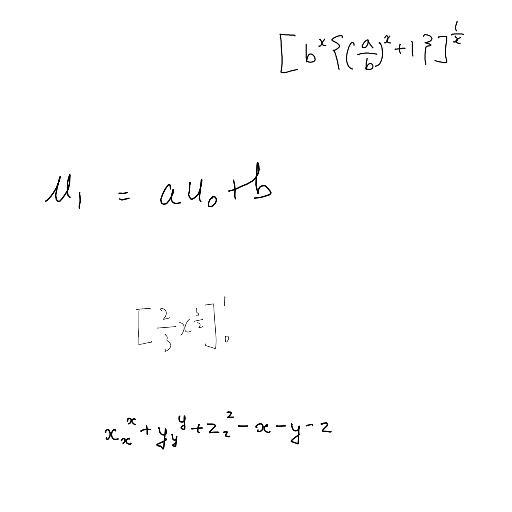 [b^x{(a/b)^x+1}]^{1/x}
u_1 = au_0+b
[2/3 x^{3/2}]_0^1
x_x^x+y_y^y+z_z^z-x-y-z